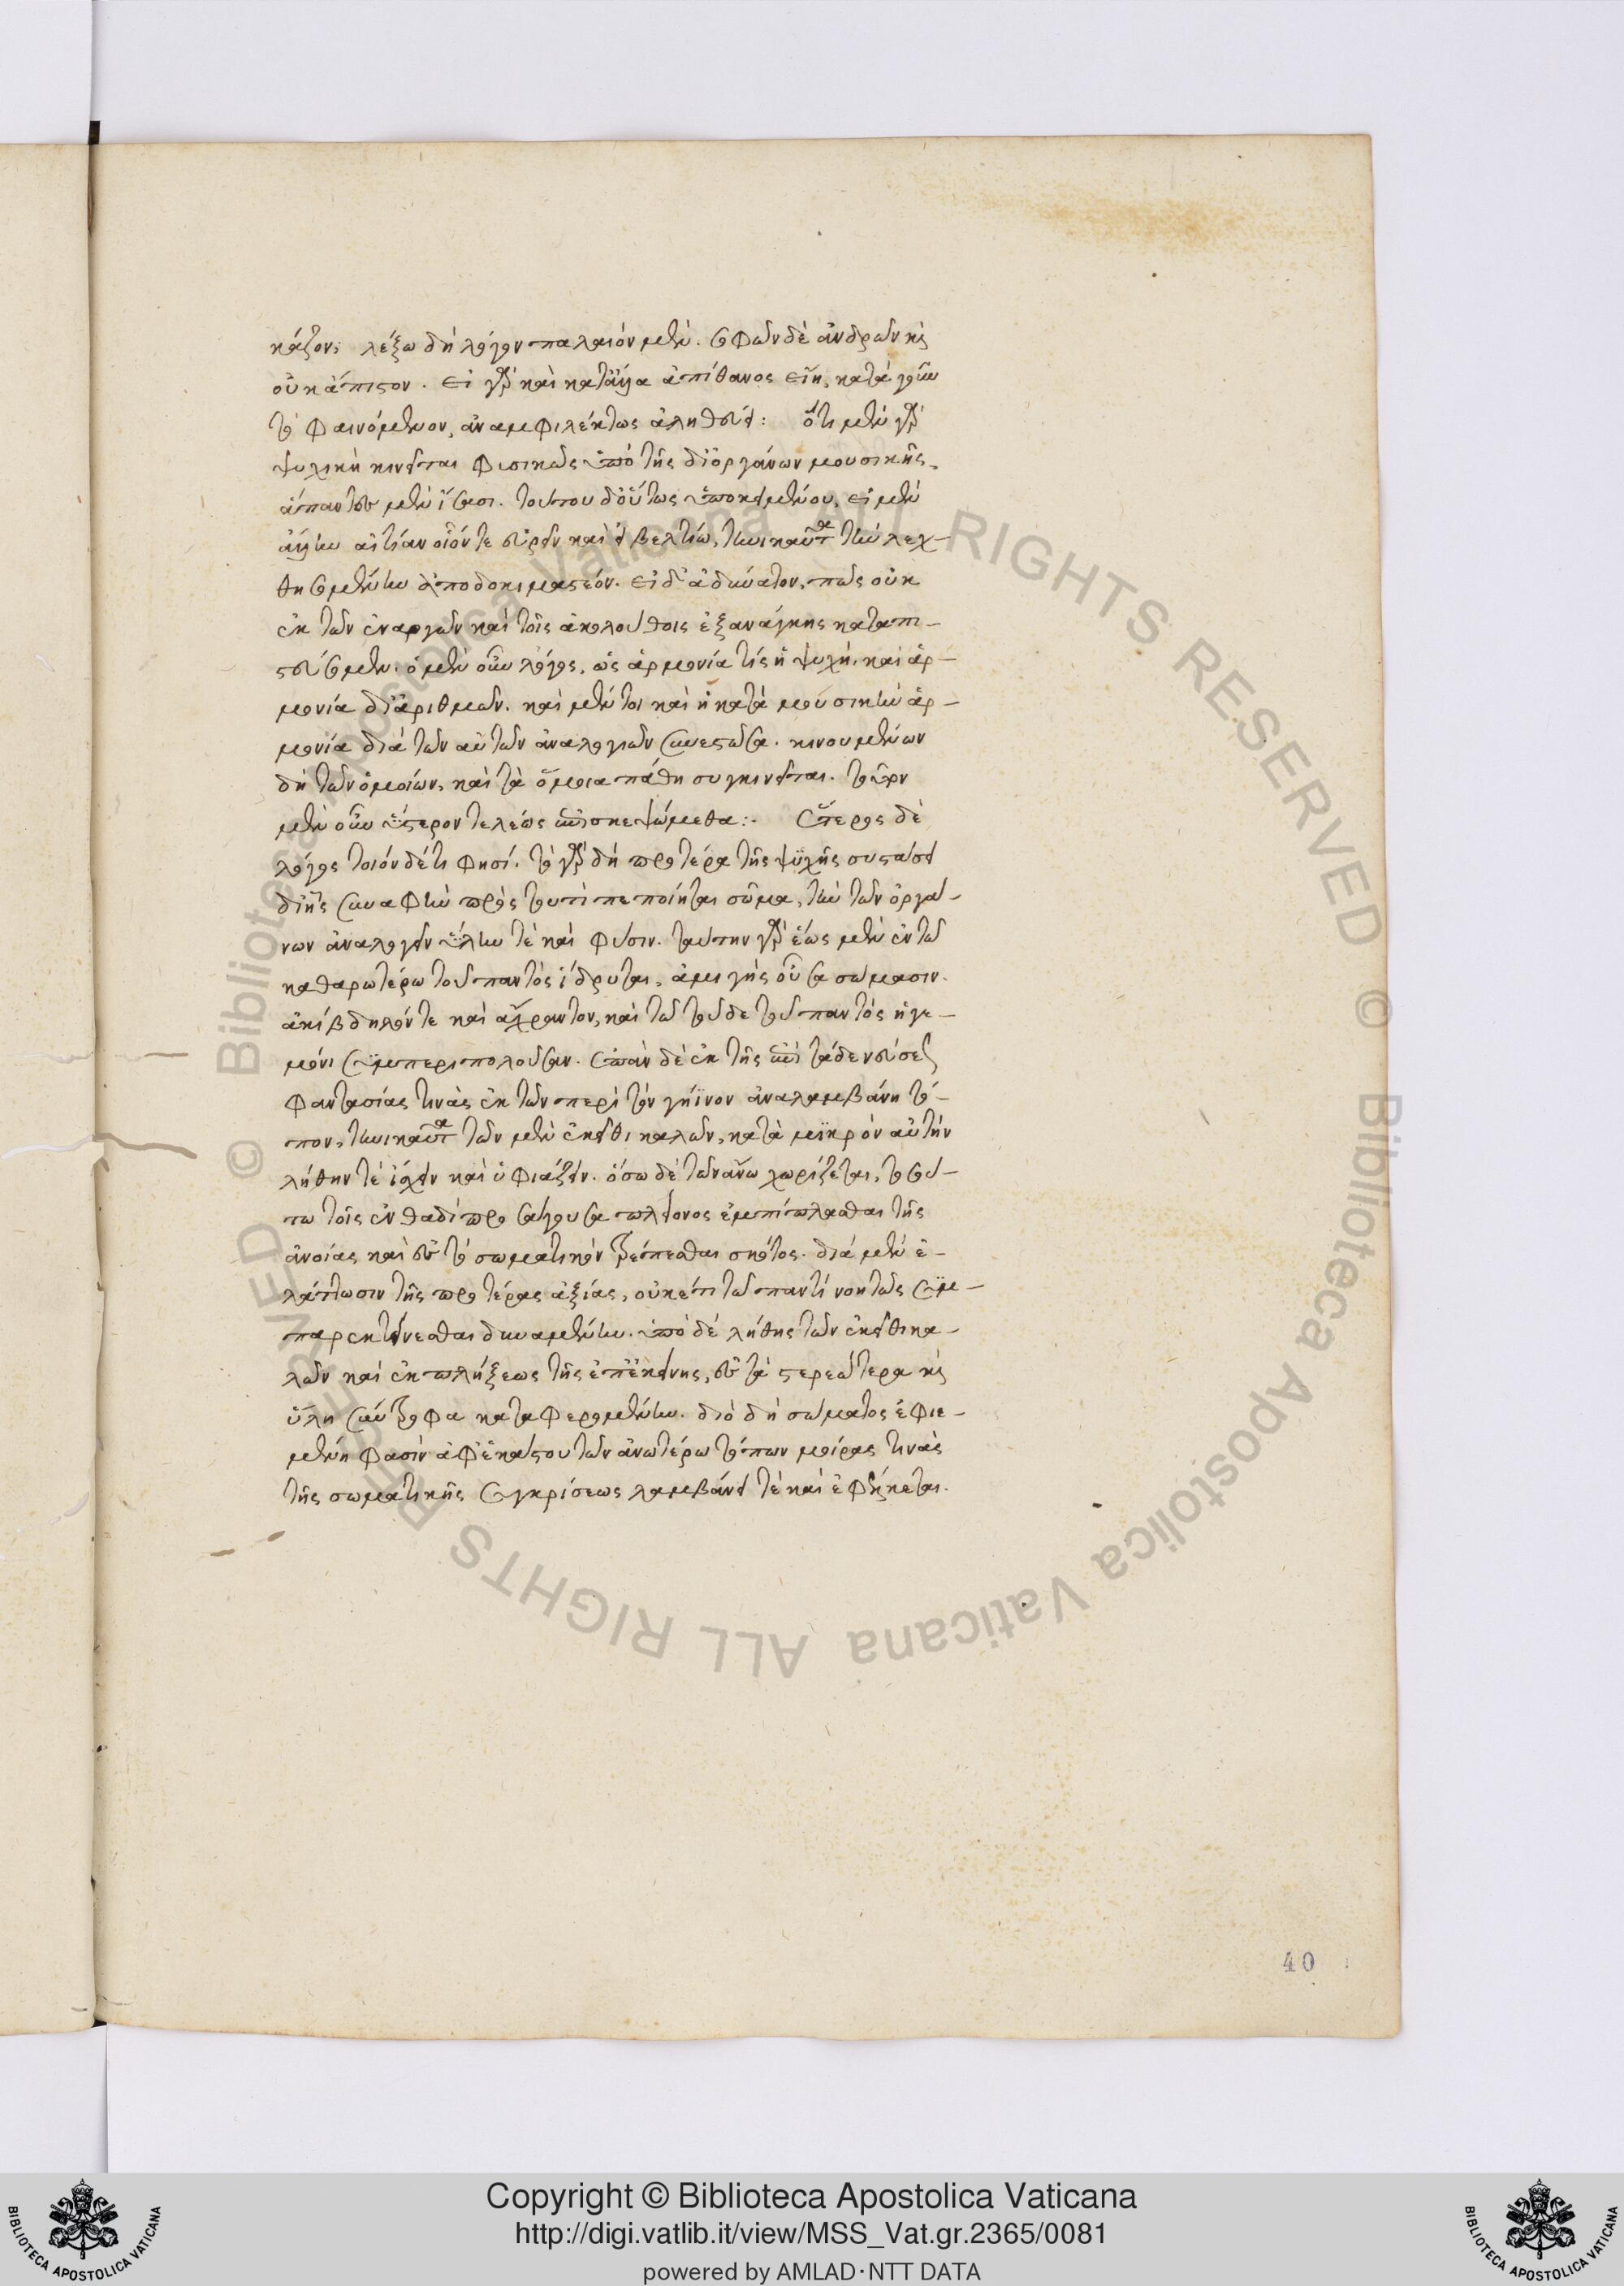 κάζον; λέξω δὴ λόγον παλαιὸν μὲν. σοφῶν δὲ ἀνδρῶν κὶ
οὐκ ἄπιστον. εἰ γὰρ καὶ κατ' ἄλλα ἀπίθανος εἴη, κατὰ γοῦν
τὸ φαινόμενον, ἀναμφιλέκτως ἀληθεύει: ὅτι μὲν γὰρ
ψυχικὴ κινεῖται φυσικῶς ὑπὸ τῆς δι' ὀργάνων μουσικῆς,
ἅπαντες μὲν ἴσασι. τούτου δ' οὕτως ὑποκειμένου, εἰ μὲν
ἄλλην αἰτίαν οἷόν τε εὑρεῖν καὶ εἰ βελτίω, τηνικαῦτα τὴν λεχ-
θησομένην ἀποδοκιμαστέον. εἰ δ' ἀδύνατον, πῶς οὐκ
ἐκ τῶν ἐναργῶν καὶ τοῖς ἀκολούθοις ἐξ ἀνάγκης καταπι-
στεύσομεν. ὁ μὲν οὖν λόγος, ὡς ἁρμονία τίς ἡ ψυχὴ, καὶ ἁρ-
μονία δι' ἀριθμῶν. καὶ μέντοι καὶ ἡ κατὰ μουσικὴν ἁρ-
μονία διὰ τῶν αὐτῶν ἀναλογιῶν συνεστῶσα. κινουμένων
δὴ τῶν ὁμοίων, καὶ τὰ ὅμοια πάθη συγκινεῖται.
μὲν οὖν ὕστερον τελεώς ἐπισκεψώμεθα:. ἕτερος δὲ
λόγος τοιόνδέ τι φησί. τὸ γὰρ δὴ προτέρα τῆς ψυχῆς συστάσει
δι' ἧς συναφὴν πρὸς τουτὶ πεποίηται σῶμα, τὴν τῶν ὀργά-
νων ἀναλογεῖν ὕλην τὲ καὶ φύσιν. ταύτην γὰρ ἕως μὲν ἐν τῶ
καθαρωτέρω τοῦ παντὸς ἵδρυται, ἀμιγὴς οὖσα σώμασιν.
ἀκίβδηλόν τε καὶ ἄχραντον, καὶ τῶ τοῦδε τοῦ παντὸς ἡγε-
μόνι συμπεριπολοῦσαν. ἐπὰν δὲ ἐκ τῆς ἐπὶ τάδε νεύσεως
φαντασίας τινὰς ἐκ τῶν περὶ τὸν γήϊνον ἀναλαμβάνη τό-
πον, τηνικαῦτα τῶν μὲν ἐκεῖθι καλῶν, κατὰ μικρὸν αὐτὴν
λήθην τὲ ἴσχειν καὶ ὑφιζάνειν. ὅσω δὲ τῶν ἄνω χωρίζεται, τοσού-
τω τοῖς ἐνθαδὶ προσάγουσα πλείονος ἐμπίπλασθαι τῆς
ἀνοίας καὶ εἰς τὸ σωματικὸν τρέπεσθαι σκότος. διὰ μὲν ἐ-
λάττωσιν τῆς προτέρας ἀξίας, οὐκέτι τῶ παντὶ νοητῶς συμ-
παρεκτείνεσθαι δυναμένην. ὑπὸ δὲ λήθης τῶν ἐκεῖθι κα-
λῶν καὶ ἐκπλήξεως τῆς ἐπέκεινης, εἰς τὰ στερεώτερα κὶ
ὕλη σύντροφα καταφερομένην. διὸ δὴ σώματος ἐφιε-
μένη φασὶν ἀφ' ἑκάστου τῶν ἀνωτέρω τόπων μοίρας τινὰς
τῆς σωματικῆς συγκρίσεως λαμβάνει τὲ καὶ ἐφέλκεται.
40
Copyright © Biblioteca Apostolica Vaticana
http://digi.vatlib.it/view/MSS_Vat.gr.2365/0081
powered by AMLAD·NTT DATA